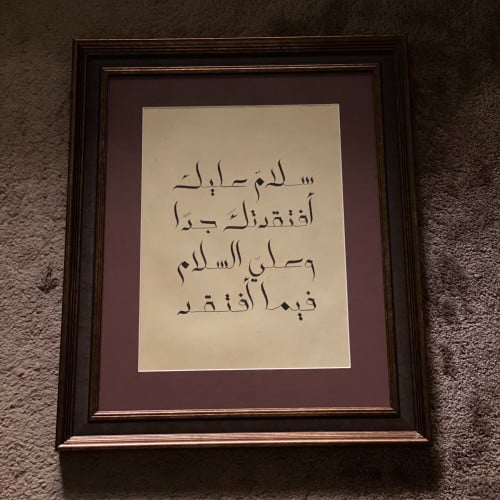 سلامٌ عليك
أفتقدتكَ جدّا
وعليّ السلام
فيما أفتقد